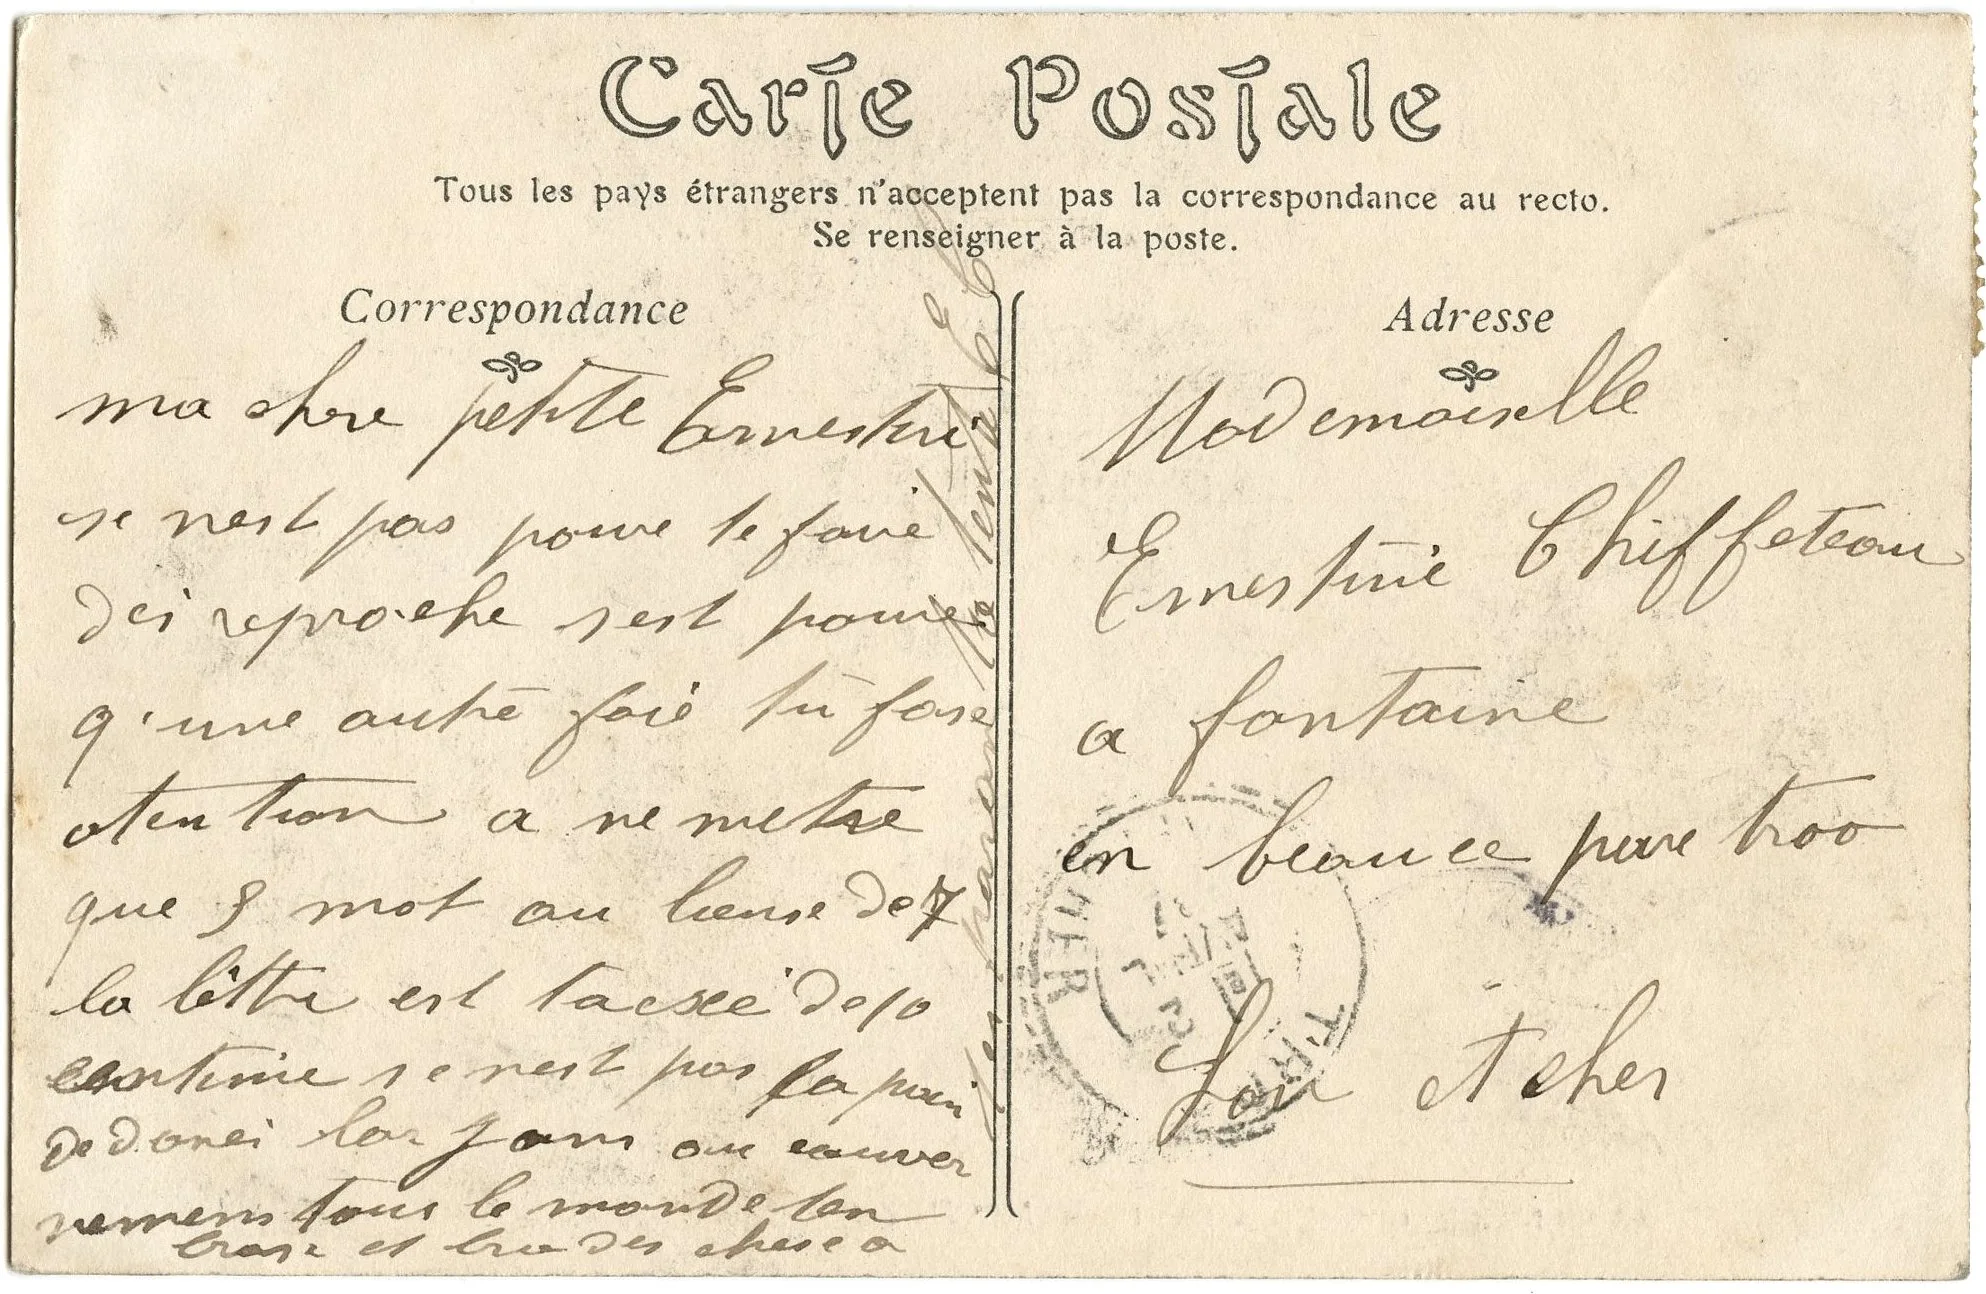 Carte Postale
Tous les pays étrangers n'acceptent pas la correspondance au recto.
Se renseigner à la poste.
Correspondance
ma chere petite Ernestine
se nest pas poure te faire
des reproche sest poure
q'une autre foie tu fase
atention a ne metre
que 5 mot au lieuse de 7
la lettre est tacsée de 10
centime se nest pas la pain
de donei lar jans au gouver
nemens tous le monde ten
brase et bien des chose a
tes paran ta tente
Adresse
Mademoiselle
Ernestine Chiffeteau
a fontaine
en beauce pare troo
Loir et cher